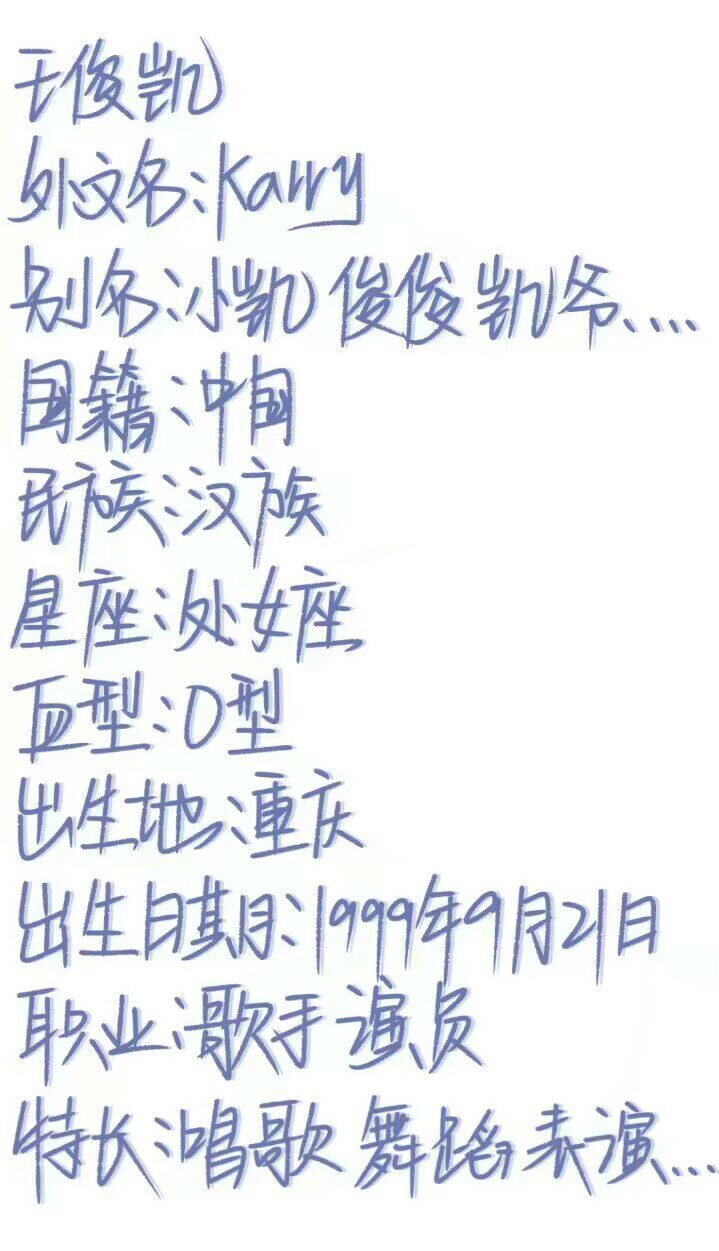 王俊凯
外文名:Karry
别名:小凯 俊俊 凯爷....
国籍:中国
民族:汉族
星座:处女座
血型:O型
出生地:重庆
出生日期:1999年9月21日
职业:歌手 演员
特长:唱歌 舞蹈 表演...